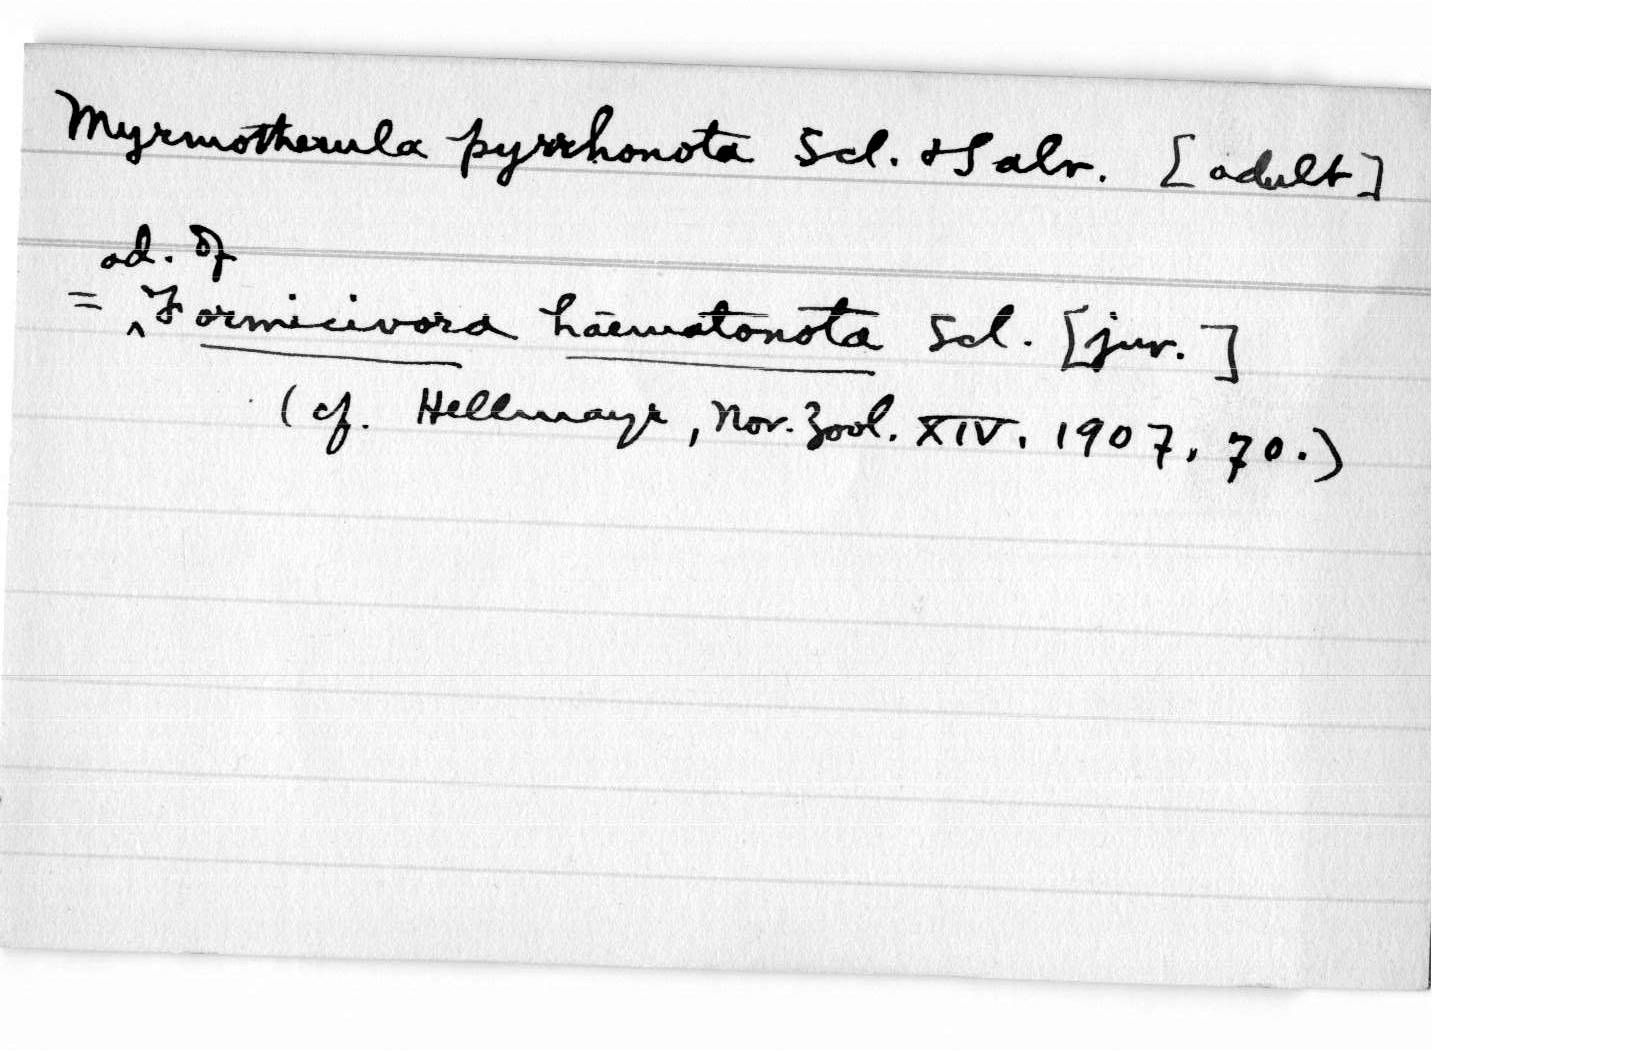 Myrmotherula pyrrhonota Scl. & Salv. [adult]
ad. of
= ^ Formicivora haematonota Scl. [juv.]
(cf. Hellmayr, Nov. Zool. XIV, 1907, 70.)